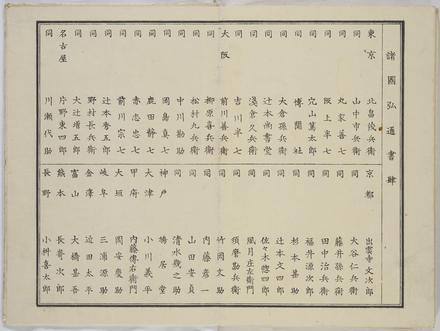 諸國弘通書肆
東京 北畠茂兵衛
同 山中市兵衛
同 丸家善七
同 阪上半七
同 穴山篤太郎
同 博聞社
同 大倉孫兵衛
同 辻本尚書堂
同 淺倉久兵衛
同 吉川半七
大阪 前川善兵衛
同 柳原喜兵衛
同 松村九兵衛
同 中川勘助
同 岡島真七
同 鹿田静七
同 赤志忠七
同 前川宗七
同 辻本秀五郎
同 野村長兵衛
同 大辻增五郎
名古屋 片野東四郎
同 川瀬代助
京都 出雲寺文次郎
同 大谷仁兵衛
同 藤井孫兵衛
同 田中治兵衛
同 福井源次郎
同 杉本甚助
同 辻本文四郎
同 佐々木惣四郎
同 風月庄左衛門
同 須磨勘兵衛
同 竹岡文助
同 内藤彦一
同 山田安貞
同 清水幾之助
神戸 鳩居堂
大津 小川義平
甲府 内藤傳右衛門
大垣 岡安慶助
岐阜 三浦源助
金澤 近田太平
富山 大橋甚吾
熊本 長崎次郎
長野 小桝喜太郎